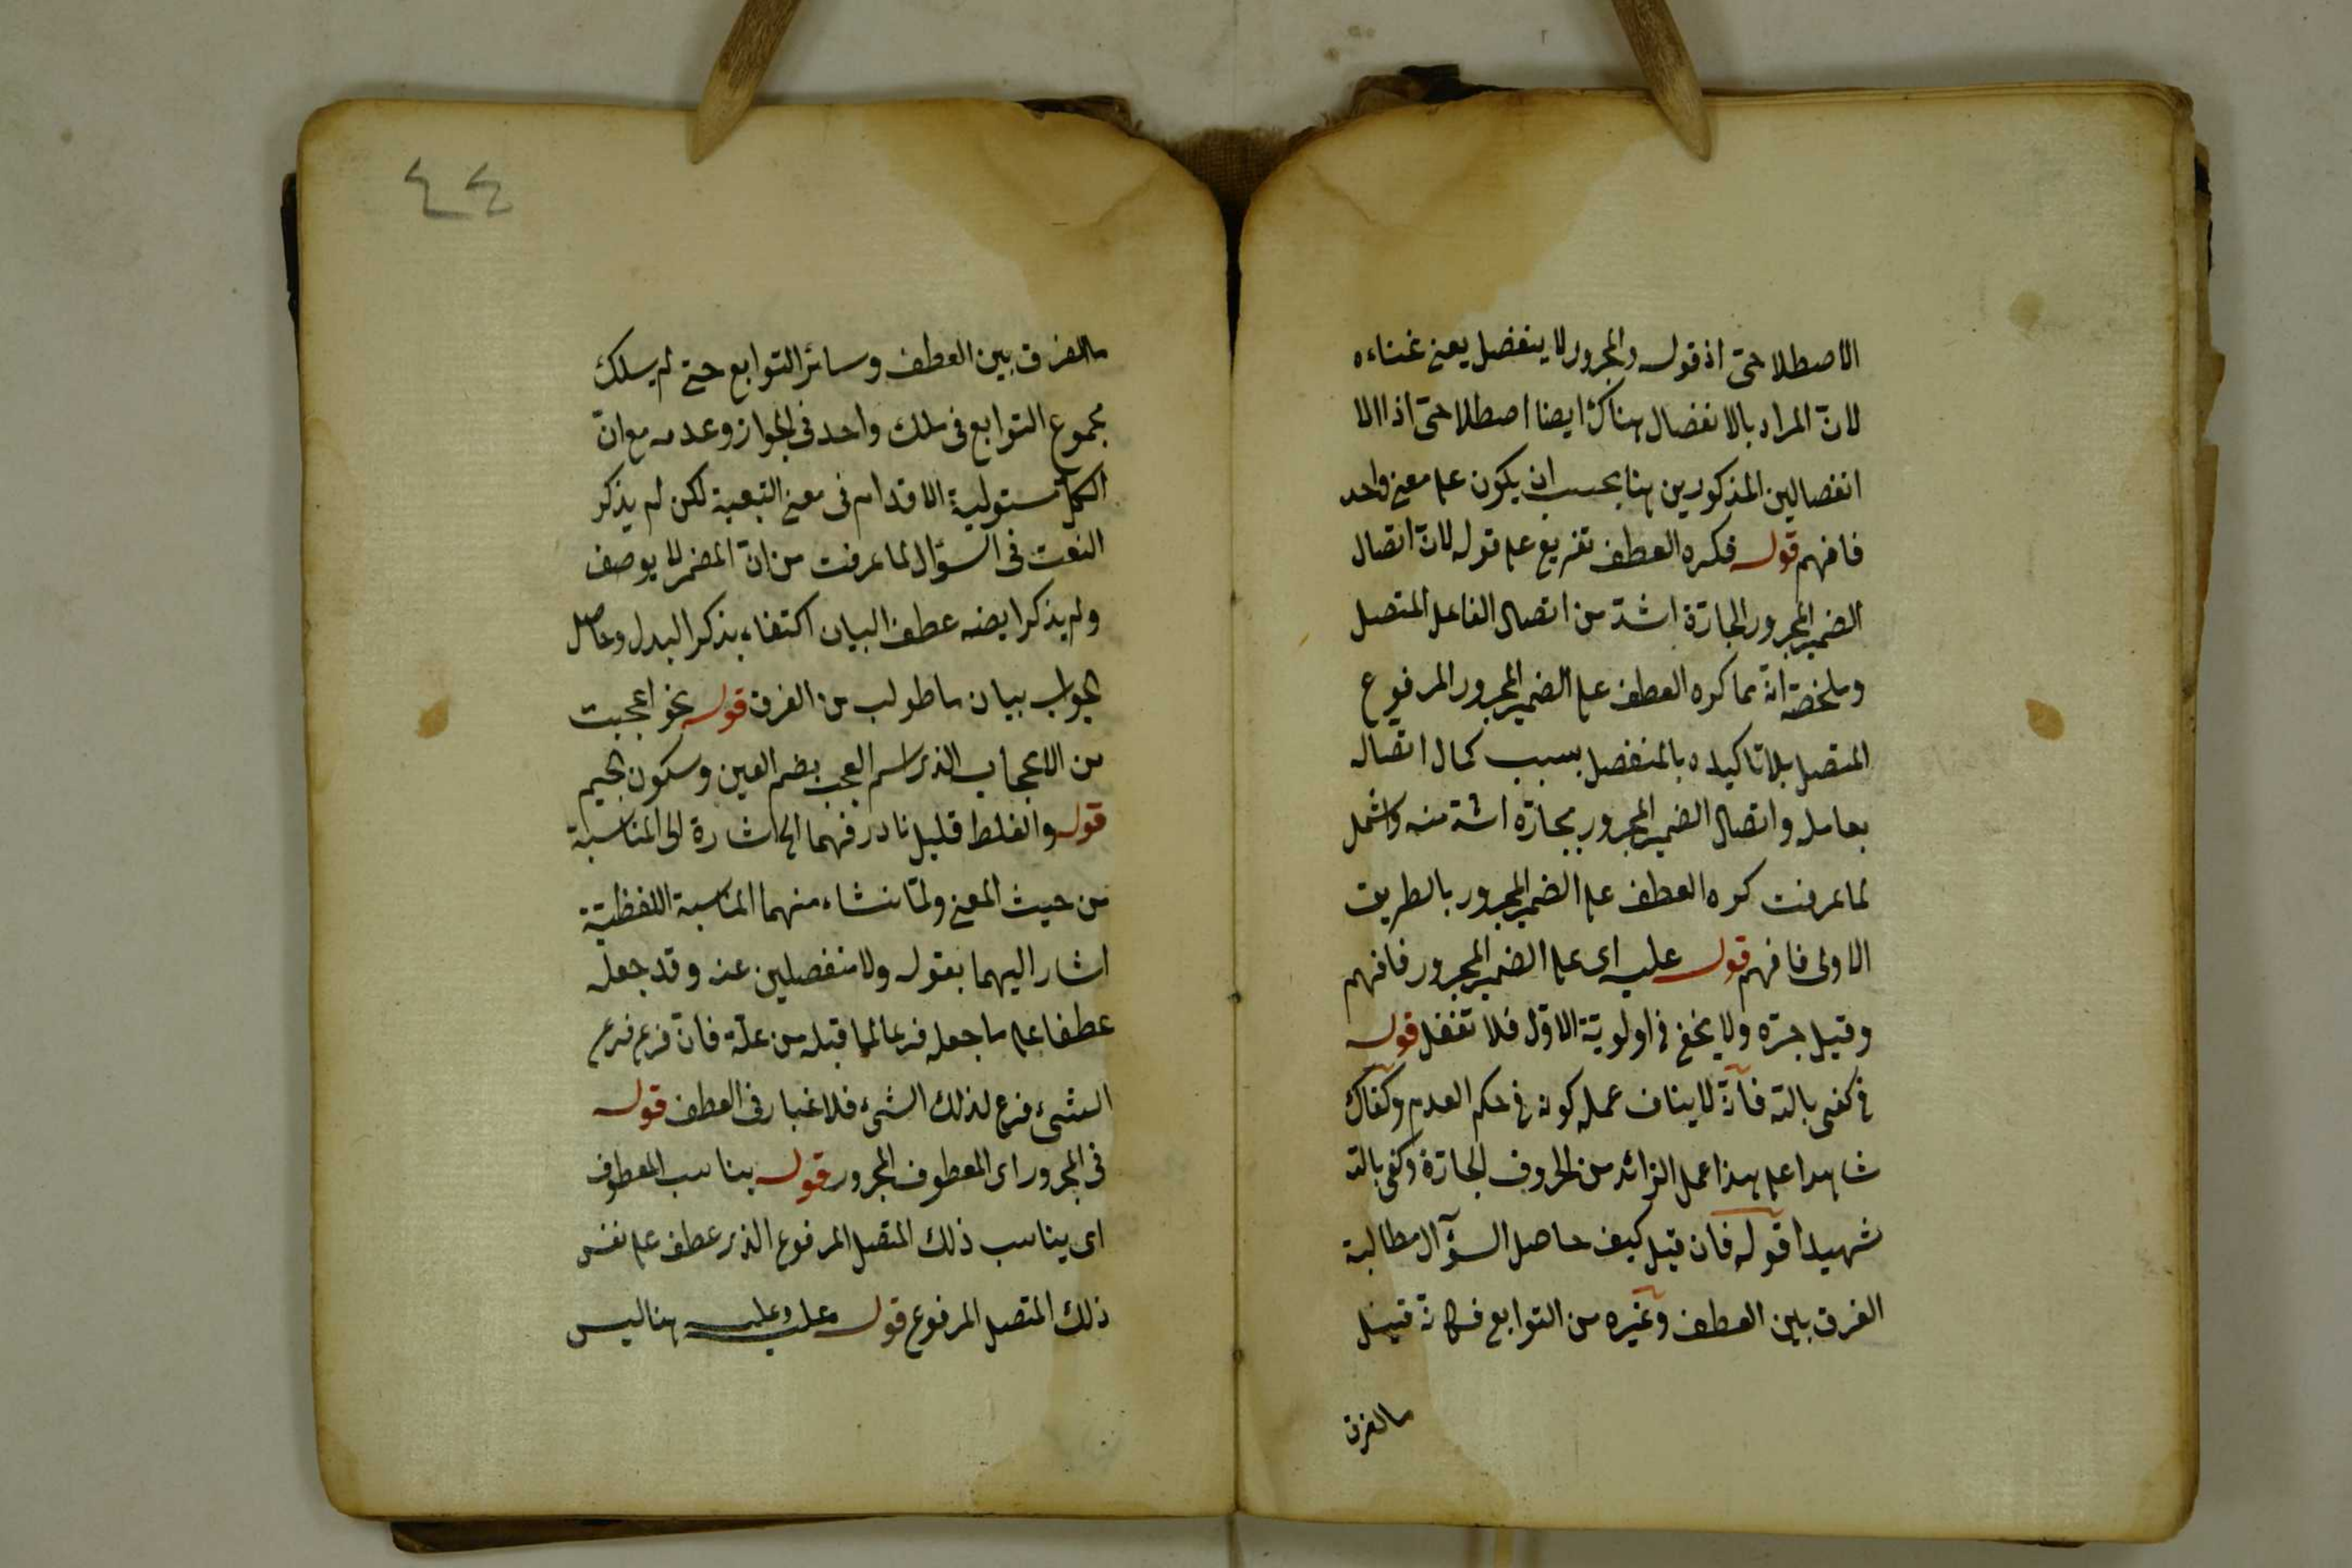 الاصطلاحى اذ قوله والمجرور لا ينفصل يعنى غناءه
لانّ المراد بالانفصال هناك ايضا اصطلاحى اذ الا
انفصالين المذكورين هنا بحسب ان يكون على معنى واحد
فافهم قوله فكره العطف تفريع على قوله لانّ اتصال
الضمير المجرور الجارّة اشدّ من اتصال الفاعل المتصل
وملخصه انّه كما كره العطف على الضمير المجرور المرفوع
المتصل بلا تاكيده بالمنفصل بسبب كمال اتصاله
بعامله واتصال الضمير المجرور بجارّه اشدّ منه واشمل
لما عرفت كره العطف على الضمير المجرور بالطريق
الاولى فافهم قوله عليه اى على الضمير المجرور فافهم
وقيل جرّه ولا يخفى فى اولويّة الاوّل فلا تغفل قوله
فى كفى بالله فانّه لا ينافى عمله كونه فى حكم العدم وكفاك
شاهدا على هذا عمل الزائد من الحروف الجارّة وكفى بالله
شهيدا قوله فان قيل كيف حاصل السؤال مطالبة
الفرق بين العطف وغيره من التوابع فكانّه قيل
ما الفرق
٤٤
ما الفرق بين العطف وسائر التوابع حتى لم يسلك
مجموع التوابع فى سلك واحد فى الجواز وعدمه مع انّ
الكلّ مستولية الاقدام فى معنى التبعية لكن لم يذكر
النعت فى السؤال لما عرفت من انّ المضمر لا يوصف
ولم يذكر ايضه عطف البيان اكتفاء بذكر البدل وحاصل
الجواب بيان ما طولب من الفرق قوله نحو اعجبت
من الاعجاب الذى اسم العجب بضم العين وسكون الجيم
قوله والغلط قليل نادر فهما الخ اشارة الى المناسبة
من حيث المعنى ولمّا ينشاء منهما المناسبة اللفظيّة
اشار اليهما بقوله ولا منفصلين عنه وقد جعله
عطفا على ما جعله فرعا لما قبله من علّة فانّ فرع فرع
الشىء فرع لذلك الشىء فلا غبار فى العطف قوله
فى المجرور اى المعطوف المجرور قوله يناسب المعطوف
اى يناسب ذلك المتصل المرفوع الذى عطف على نفس
ذلك المتصل المرفوع قوله عليه وعليه هنا ليس